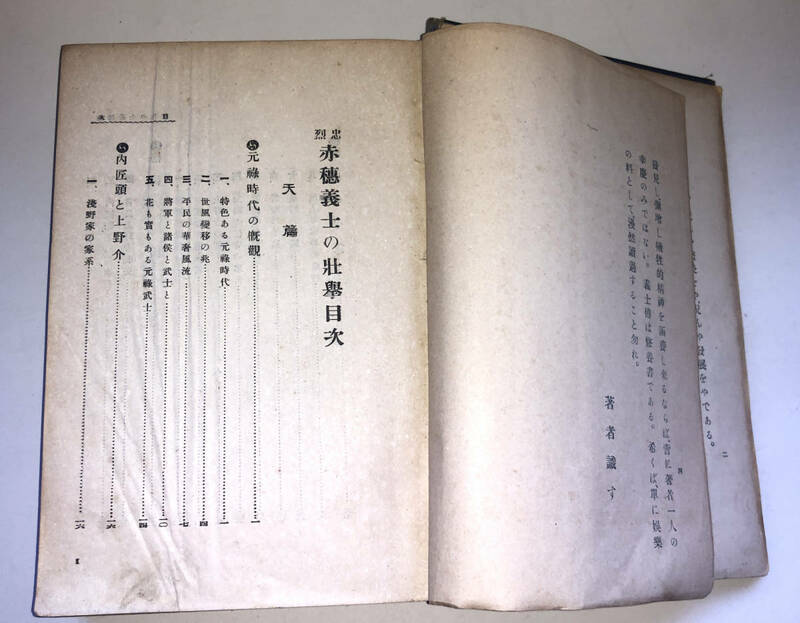 發展をやである。
二
發見し強壯し犧牲的精神を涵養し來るならば、啻に著者一人の
幸慶のみではない。義士傳は修養書である。希くば、單に娛樂
の料として漫然讀過すること勿れ。
著者識す
四
忠烈 赤穗義士の壯擧目次
天篇
元祿時代の概觀……一
一、特色ある元祿時代……一
二、世風變移の兆……四
三、平民の華奢風流……七
四、將軍と諸侯と武士と……一〇
五、花も實もある元祿武士……一四
内匠頭と上野介……一六
一、淺野家の家系……一六
目次
1